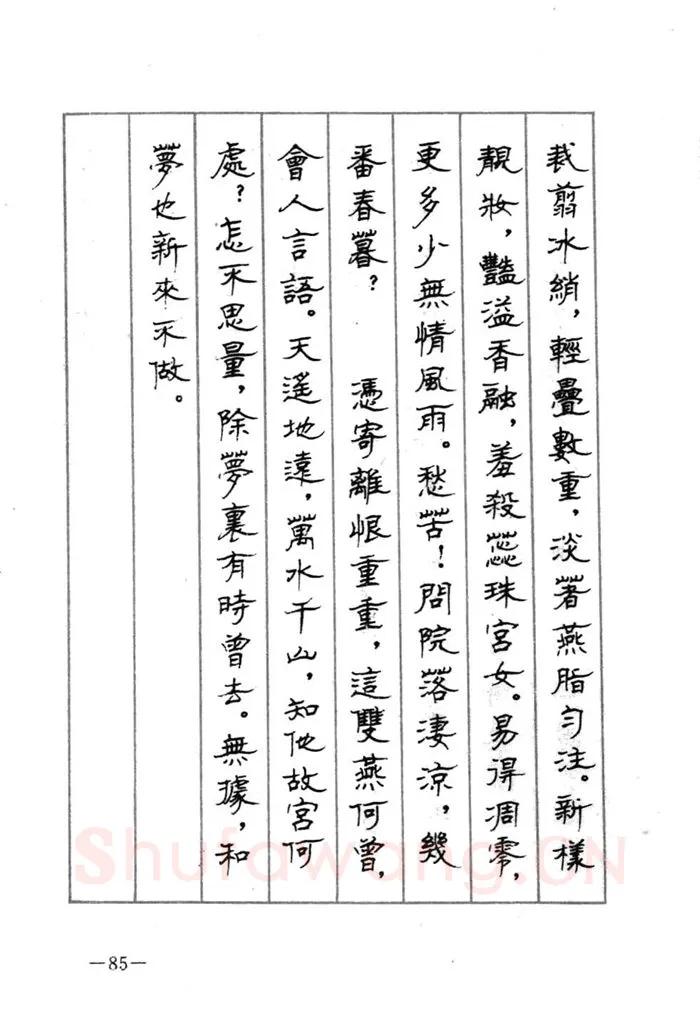 裁翦冰綃，輕疊數重，淡著燕脂勻注。新樣
靚妝，豔溢香融，羞殺蕊珠宮女。易得凋零，
更多少無情風雨。愁苦！問院落淒涼，幾
番春暮？　憑寄離恨重重，這雙燕何曾，
會人言語。天遙地遠，萬水千山，知他故宮何
處？怎不思量，除夢裏有時曾去。無據，和
夢也新來不做。
Shufawang.CN
—85—